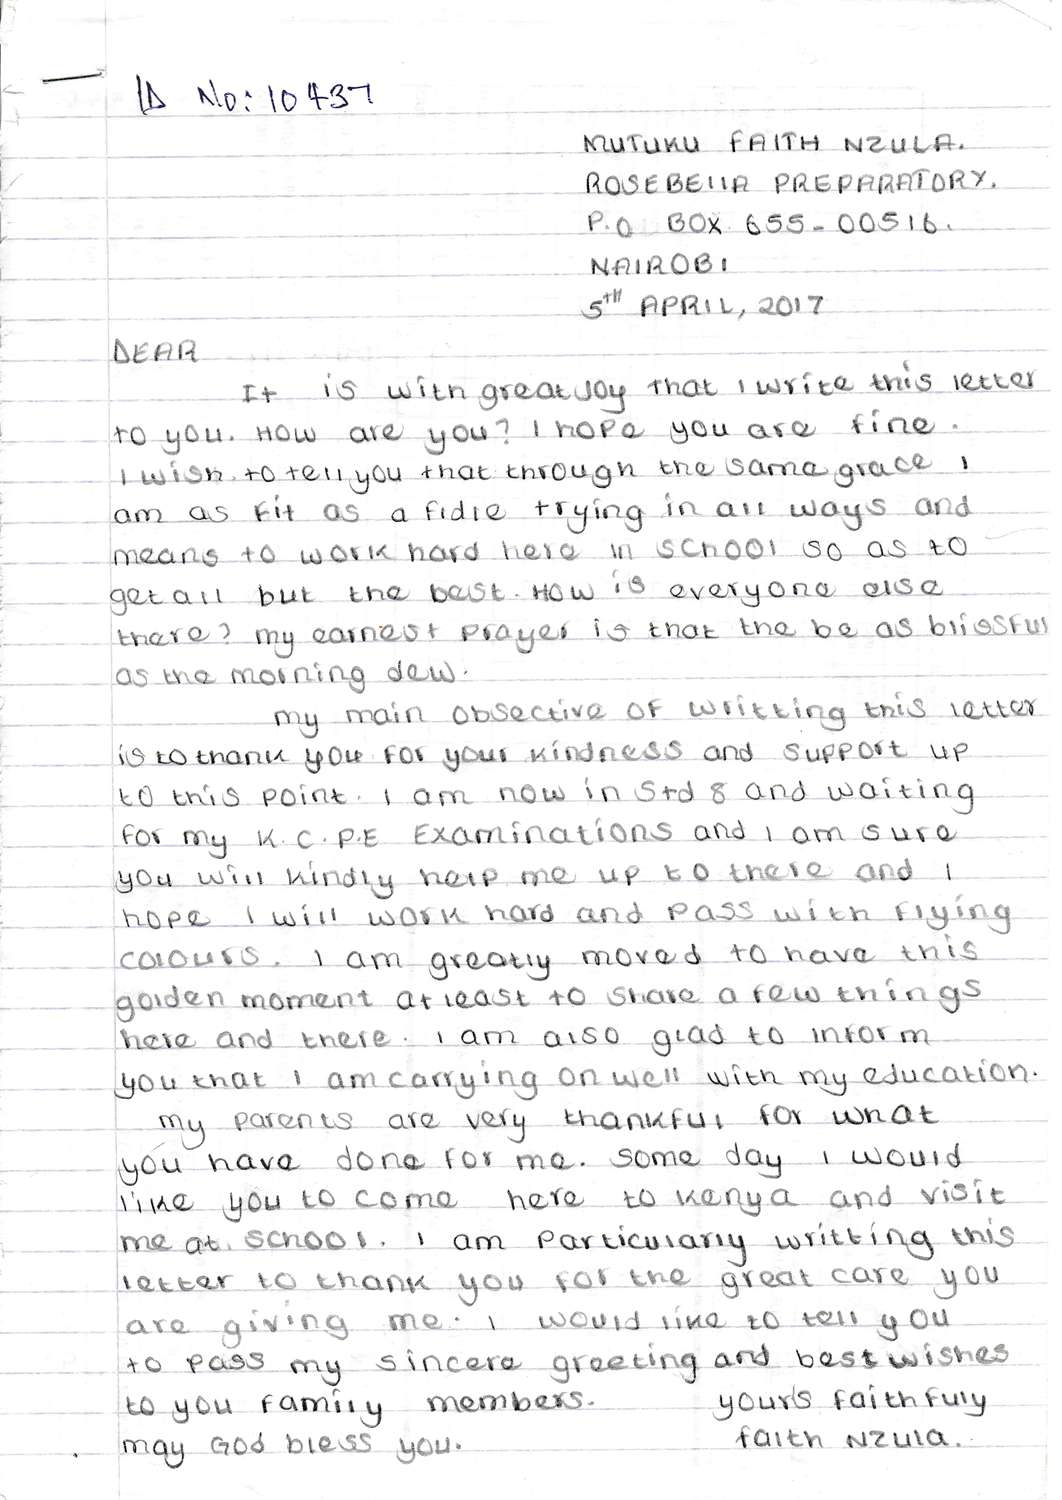 ID No: 10437
MUTUKU FAITH NZULA.
ROSEBELLA PREPARATORY.
P.O BOX 655-00516.
NAIROBI
5TH APRIL, 2017
DEAR
It is with great Joy that I write this letter
to you. How are you? I hope you are fine.
I wish to tell you that through the same grace I
am as fit as a fidle trying in all ways and
means to work hard here in school so as to
get all but the best. How is everyone else
there? my earnest prayer is that the be as blissful
as the morning dew.
my main obsective of writting this letter
is to thank you for your kindness and support up
to this point. I am now in Std 8 and waiting
for my K.C.P.E Examinations and I am sure
you will kindly help me up to there and I
hope I will work hard and pass with flying
colours. I am greatly moved to have this
golden moment at least to share a few things
here and there. I am also glad to inform
you that I am carrying on well with my education.
my parents are very thankful for what
you have done for me. some day I would
like you to come here to kenya and visit
me at school. I am particularly writting this
letter to thank you for the great care you
are giving me. I would like to tell you
to pass my sincere greeting and best wishes
to you family members. your's faithfuly
may God bless you. faith Nzula.